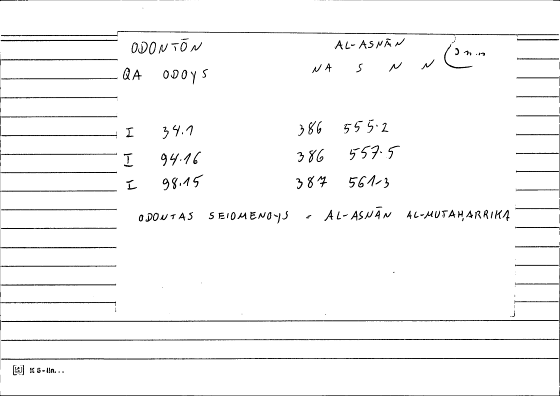 ODONTŌN AL-ASNĀN
QA ODOYS NA S N N
I 34.1 386 555.2
I 94.16 386 557.5
I 98.15 387 561.3
ODONTAS SEIOMENOYS - AL-ASNĀN AL-MUTAḤARRIKA